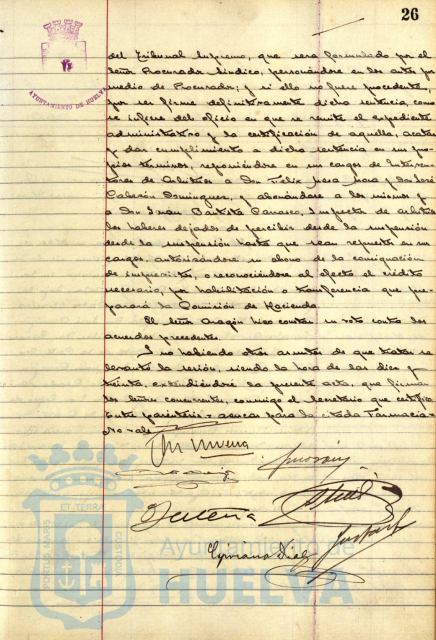 26
AYUNTAMIENTO DE HUELVA
del Tribunal Supremo, que sera formulado por el
Señor Procurador Síndico, personándose en los autos por
medio de Procurador; y si ello no fuere procedente,
por ser firme definitivamente dicha sentencia, como
se infiere del oficio en que se remite el expediente
administrativo y la certificación de aquella, acatar
y dar cumplimiento a dicha sentencia en sus pro-
pios términos, reponiéndose en sus cargos de Interven-
tores de Arbitrios a Don Felix y Don José
Calderón Dominguez, y abonándose a los mismos y
a Don Juan Bautista Carrasco, Inspector de Arbitrios
los haberes dejados de percibir desde la suspensión
desde la suspensión hasta que sean repuestos en sus
cargos, autorizándose su abono de la consignación
de imprevistos, o reconociéndose al efecto el crédito
necesario, por habilitación o transferencia que pre-
parará la Comisión de Hacienda.
El Señor Aragón hizo constar su voto contra los
acuerdos precedentes.
Y no habiendo otros asuntos de que tratar se
levantó la sesión, siendo la hora de las diez y
treinta, extendiéndose la presente acta, que firman
los Señores concurrentes, conmigo el Secretario que certifico.
Entre paréntesis = azucar para la citada Farmacia =
No vale
Cipriano Diaz
PORTUS MARIS ET TERRAE CUSTODIA
Ayuntamiento de
HUELVA